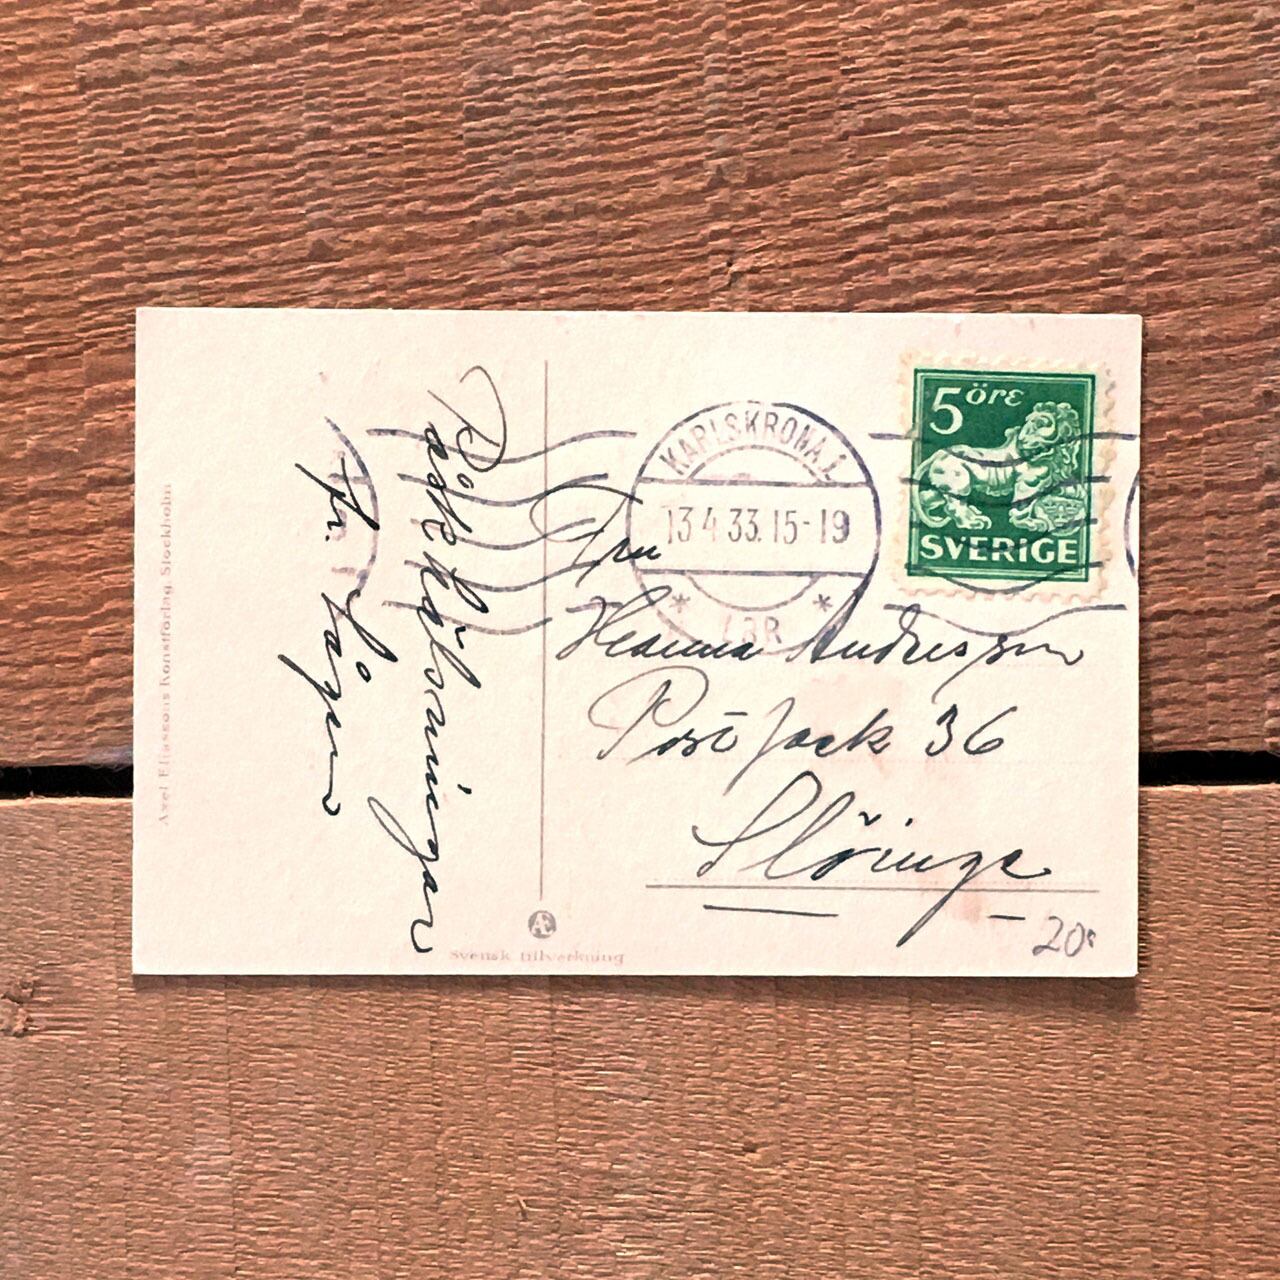 Axel Eliassons Konstförlag, Stockholm
Påskhälsningar
fr. Lågen
Svensk tillverkning
Æ
KARLSKRONA 1
13 4 33. 15-19
LBR
5 öre
SVERIGE
Fru
Hanna Andersson
Postfack 36
Slöinge
20: